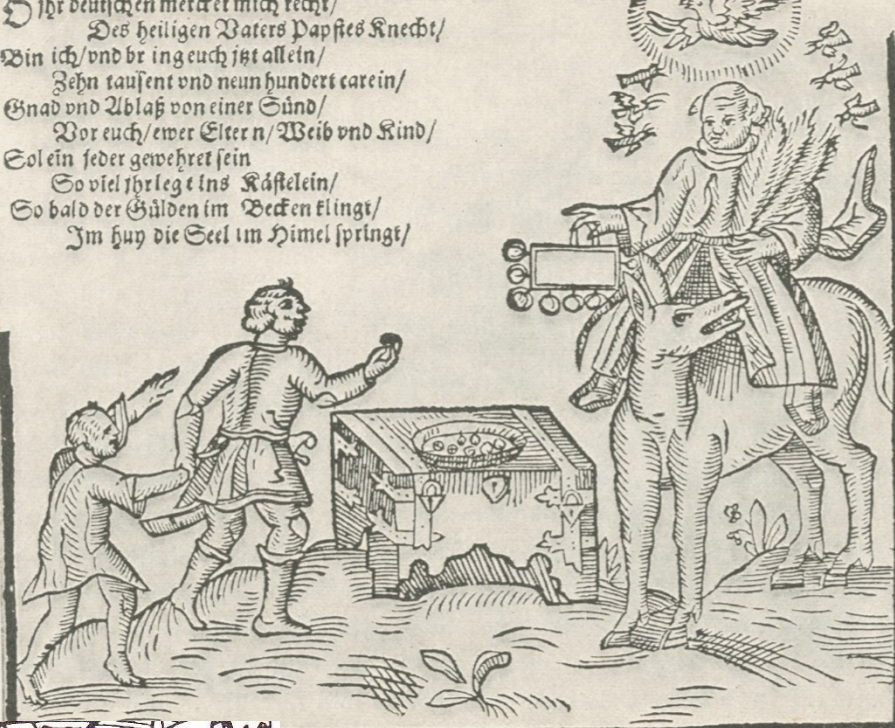 O jhr deutschen mercket mich recht/
Des heiligen Vaters Papstes Knecht/
Bin ich/vnd br ing euch jtzt allein/
Zehn tausent vnd neun hundert carein/
Gnad vnd Ablaß von einer Sünd/
Vor euch/ewer Elter n/Weib vnd Kind/
Sol ein jeder gewehret sein
So viel jhr legt ins Kästelein/
So bald der Gülden im Becken klingt/
Im huy die Seel im Himel springt/